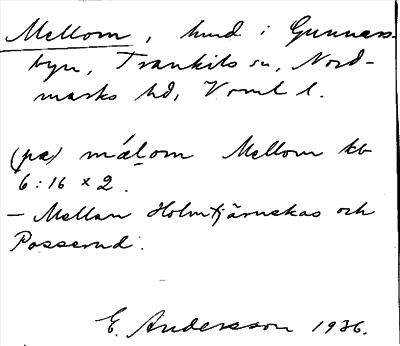 Mellom, hmd i Gunnars-
byn, Trankils sn, Nord-
marks hd, Verml l.
(på) mä́lom Mellom kb
6:16 x 2.
– Mellan Holmtjärnskas och
Posserud.
E. Andersson 1936.